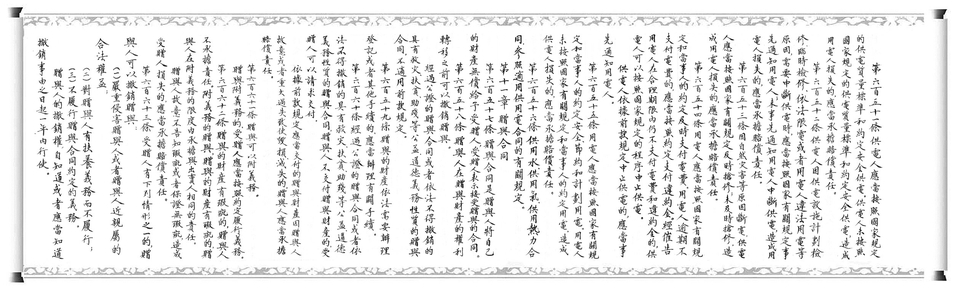 第六百五十一條供電人應當按照國家規定
的供電質量標準和約定安全供電。供電人未按照
國家規定的供電質量標準和約定安全供電,造成
用電人損失的,應當承擔賠償責任。
第六百五十二條供電人因供電設施計劃檢
修、臨時檢修、依法限電或者用電人違法用電等
原因,需要中斷供電時,應當按照國家有關規定事
先通知用電人;未事先通知用電人中斷供電,造成用
電人損失的,應當承擔賠償責任。
第六百五十三條因自然災害等原因斷電,供電
人應當按照國家有關規定及時搶修;未及時搶修,造
成用電人損失的,應當承擔賠償責任。
第六百五十四條用電人應當按照國家有關規
定和當事人的約定及時支付電費。用電人逾期不
支付電費的,應當按照約定支付違約金。經催告
用電人在合理期限內仍不支付電費和違約金的,供
電人可以按照國家規定的程序中止供電。
供電人依據前款規定中止供電的,應當事
先通知用電人。
第六百五十五條用電人應當按照國家有關規
定和當事人的約定安全、節約和計劃用電。用電人
未按照國家有關規定和當事人的約定用電,造成
供電人損失的,應當承擔賠償責任。
第六百五十六條供用水、供用氣、供用熱力合
同,參照適用供用電合同的有關規定。
第十一章贈與合同
第六百五十七條贈與合同是贈與人將自己
的財產無償給予受贈人,受贈人表示接受贈與的合同。
第六百五十八條贈與人在贈與財產的權利
轉移之前可以撤銷贈與。
經過公證的贈與合同或者依法不得撤銷的
具有救災、扶貧、助殘等公益、道德義務性質的贈與
合同,不適用前款規定。
第六百五十九條贈與的財產依法需要辦理
登記或者其他手續的,應當辦理有關手續。
第六百六十條經過公證的贈與合同或者依
法不得撤銷的具有救災、扶貧、助殘等公益、道德
義務性質的贈與合同,贈與人不交付贈與財產的,受
贈人可以請求交付。
依據前款規定應當交付的贈與財產因贈與人
故意或者重大過失致使毀損、滅失的,贈與人應當承擔
賠償責任。
第六百六十一條贈與可以附義務。
贈與附義務的,受贈人應當按照約定履行義務。
第六百六十二條贈與的財產有瑕疵的,贈與人
不承擔責任。附義務的贈與,贈與的財產有瑕疵的,贈
與人在附義務的限度內承擔與出賣人相同的責任。
贈與人故意不告知瑕疵或者保證無瑕疵,造成
受贈人損失的,應當承擔賠償責任。
第六百六十三條受贈人有下列情形之一的,贈
與人可以撤銷贈與:
(一)嚴重侵害贈與人或者贈與人近親屬的
合法權益;
(二)對贈與人有扶養義務而不履行;
(三)不履行贈與合同約定的義務。
贈與人的撤銷權,自知道或者應當知道
撤銷事由之日起一年內行使。